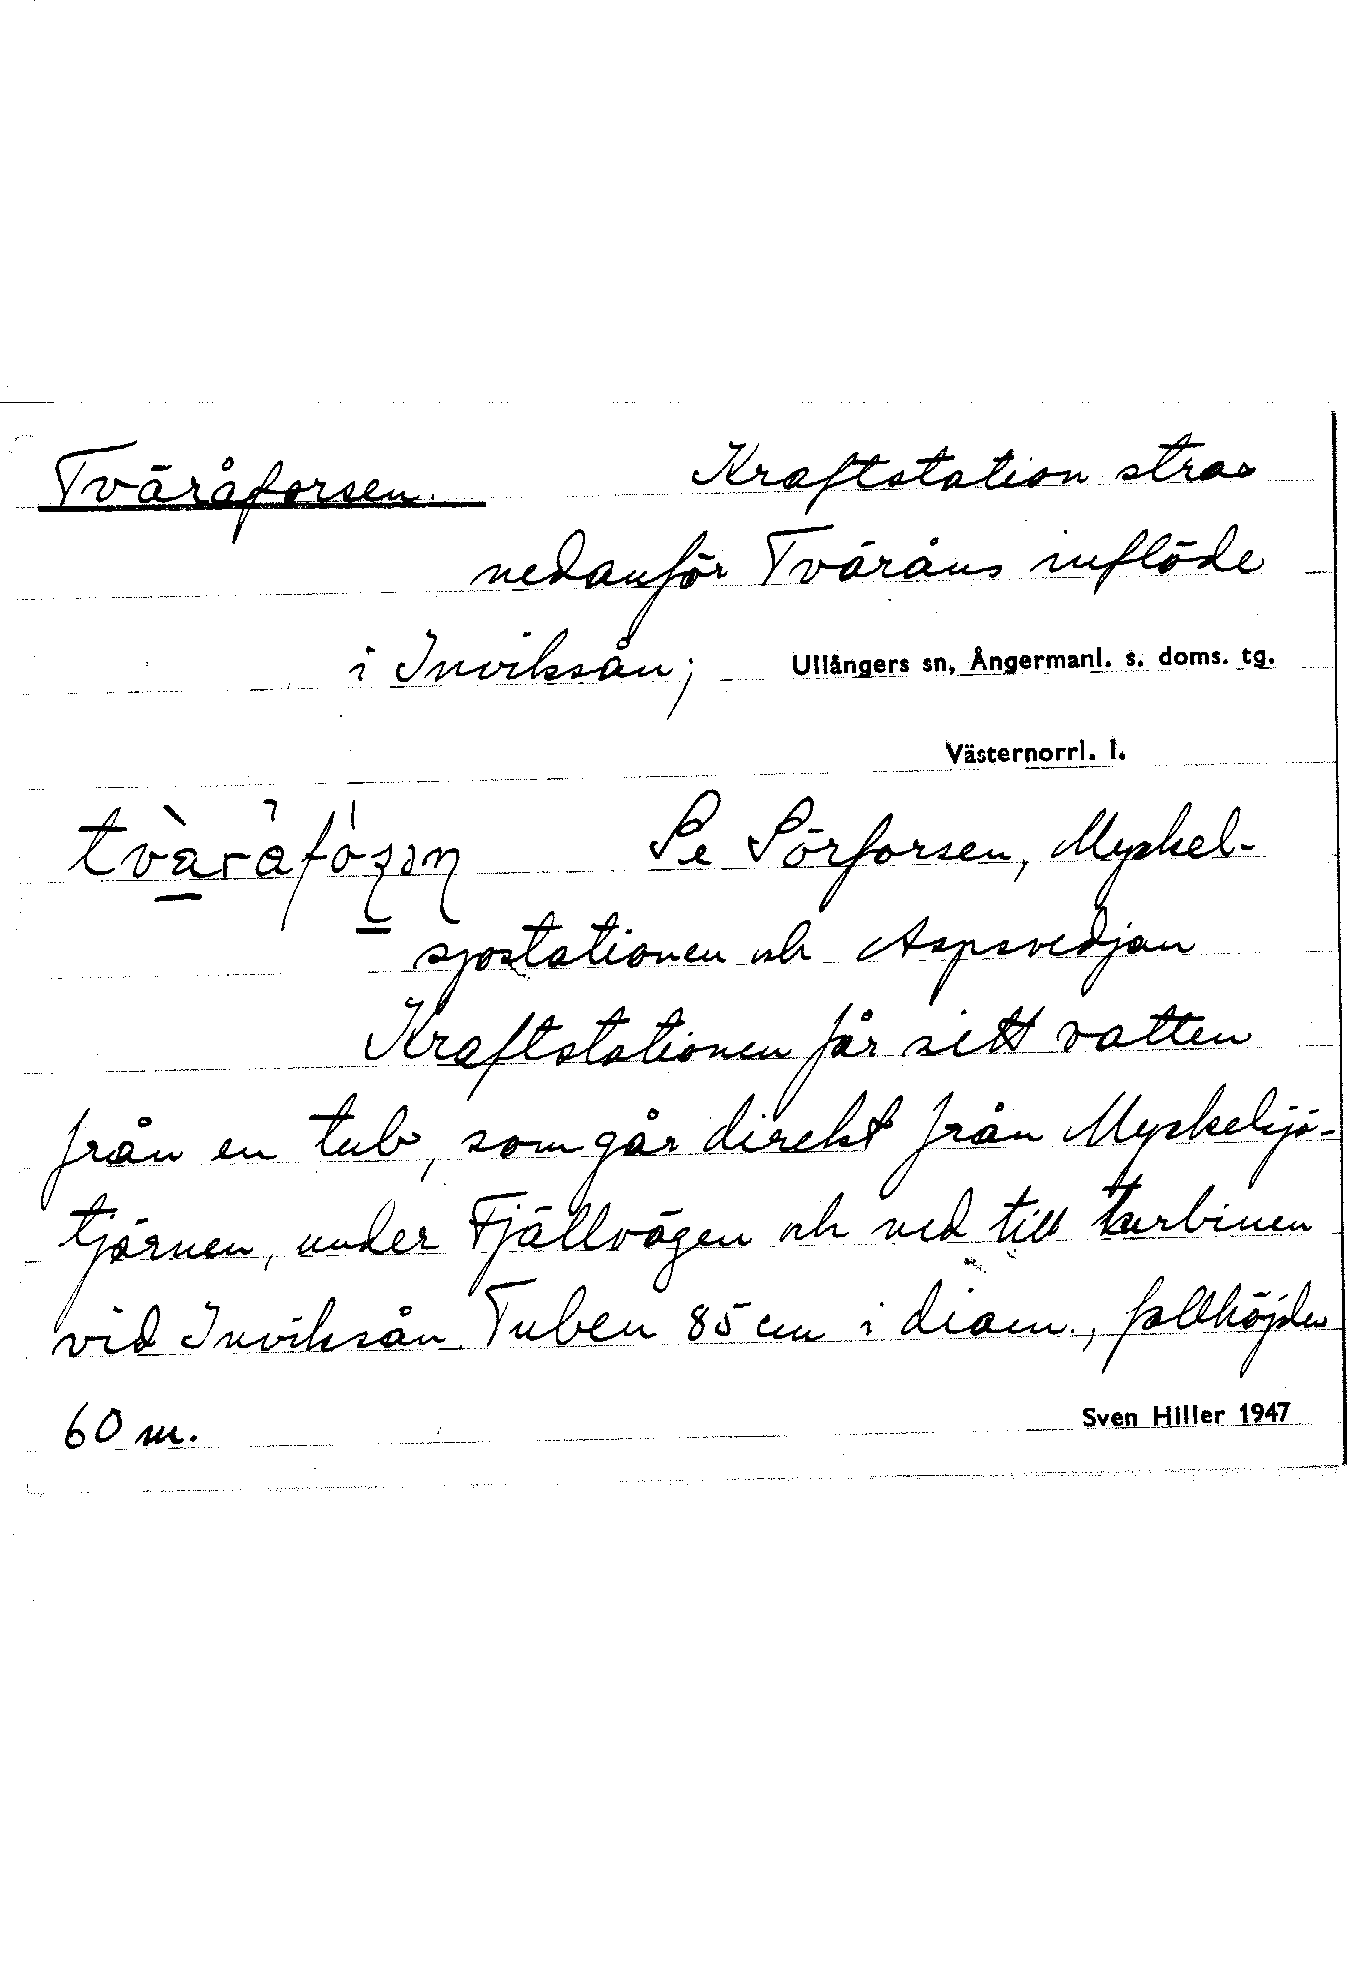 Tväråforsen. Kraftstation strax
nedanför Tväråns inflöde
i Inviksån; Ullångers sn, Ångermanl. s. doms. tg.
Västernorrl. l.
Se Sörforsen, Myskel-
sjöstationen och Aspsvedjan
Kraftstationen får sitt vatten
från en tub, som går direkt från Myskelsjö-
tjärnen, under Fjällvägen och ned till turbinen
vid Inviksån. Tuben 85 cm i diam., fallhöjden
60 m. Sven Hiller 1947